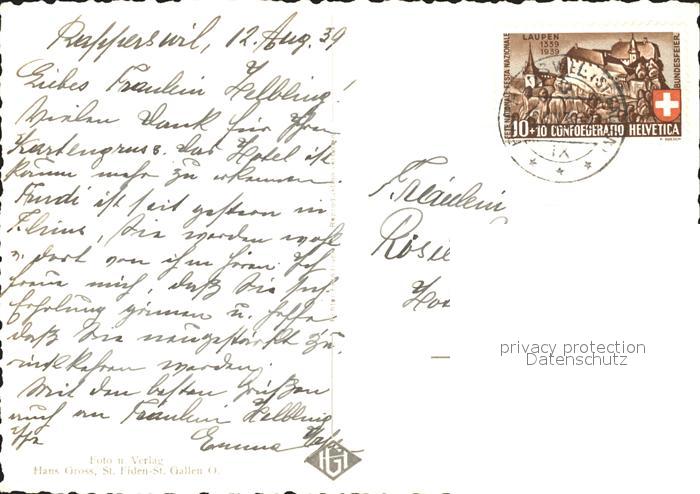 Rapperswil, 12. Aug. 39
Liebes Fräulein Helbling!
Vielen Dank für Ihren
Kartengruss. Das Hotel ist
kaum mehr zu erkennen.
ist seit gestern in
Flims, Sie werden wohl
v. dort von ihm hören. Ich
freue mich, daß Sie sich
Erholung gönnen u. hoffe
daß Sie neugestärkt zu-
rückkehren werden.
Mit den besten Grüßen
auch an Fräulein Helbling
Ihre Emma
Foto u Verlag
Hans Gross, St. Fiden-St. Gallen O.
HG
LAUPEN
1339
1939
FESTE NATIONALE FESTA NAZIONALE
BUNDESFEIER
10+10 CONFOEDERATIO HELVETICA
IX
Fräulein
Rösi
privacy protection
Datenschutz